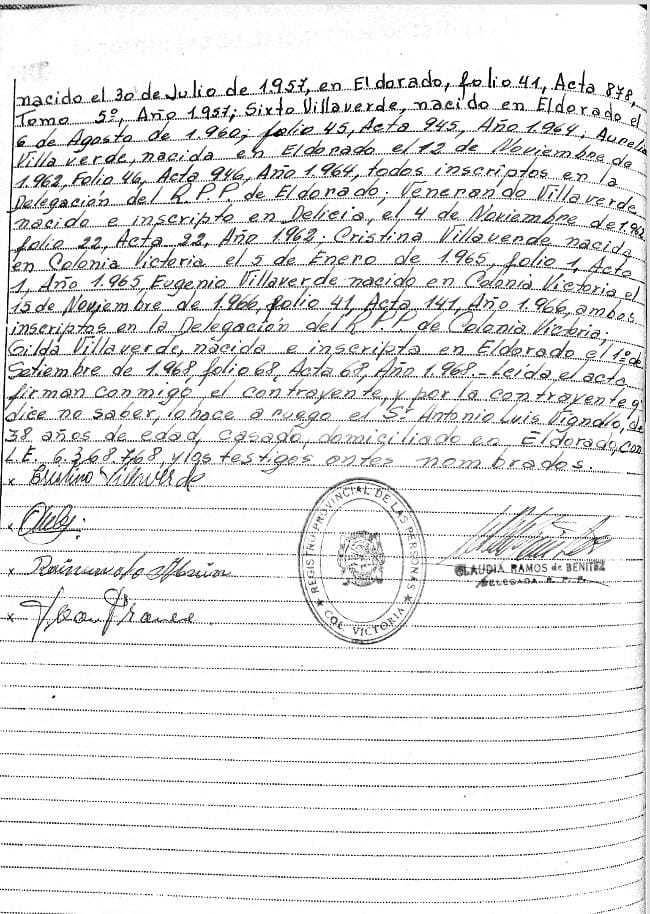 nacido el 30 de Julio de 1957, en Eldorado, folio 41, Acta 878,
Tomo 5º, Año 1957; Sixto Villaverde, nacido en Eldorado el
6 de Agosto de 1.960, folio 45, Acta 945, Año 1.964; Aurelia
Villaverde, nacida en Eldorado el 12 de Noviembre de
1.962, Folio 46, Acta 946, Año 1.964, todos inscriptos en la
Delegación del R.P.P. de Eldorado; Venerando Villaverde
nacido e inscripto en Delicia, el 4 de Noviembre de 1962
folio 22, Acta 22, Año 1962; Cristina Villaverde nacida
en Colonia Victoria el 5 de Enero de 1.965, folio 1, Acta
1, Año 1.965, Eugenio Villaverde nacido en Colonia Victoria el
15 de Noviembre de 1.966, folio 41, Acta 141, Año 1.966, ambos
inscriptos en la Delegación del R.P.P. de Colonia Victoria;
Gilda Villaverde, nacida e inscripta en Eldorado el 1º de
Setiembre de 1.968, folio 68, Acta 68, Año 1.968.- Leida el acta,
firman conmigo el contrayente, y por la contrayente q'
dice no saber, lo hace a ruego el Sr. Antonio Luis Vignolo, de
38 años de edad, casado, domiciliado en Eldorado, con
L.E. 6.368.768, y los testigos antes nombrados.
x
x
x
x
REGISTRO PROVINCIAL DE LAS PERSONAS
COL. VICTORIA
CLAUDIA RAMOS de BENITEZ
DELEGADA R. P. P.